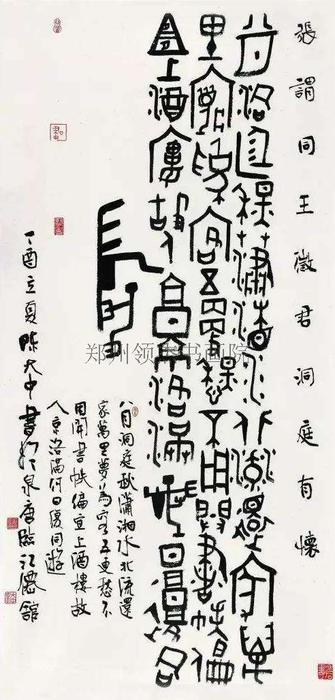 張謂同王徵君洞庭有懷
八月洞庭秋瀟湘水北流還家萬
里夢為客五更愁不用開書帙偏
宜上酒樓故人京洛滿何日復同
游
八月洞庭秋瀟湘水北流還
家萬里夢為客五更愁不
用開書帙偏宜上酒樓故
人京洛滿何日復同遊
丁酉立夏陳大中書於泉唐臨江僊館
郑州领书画院